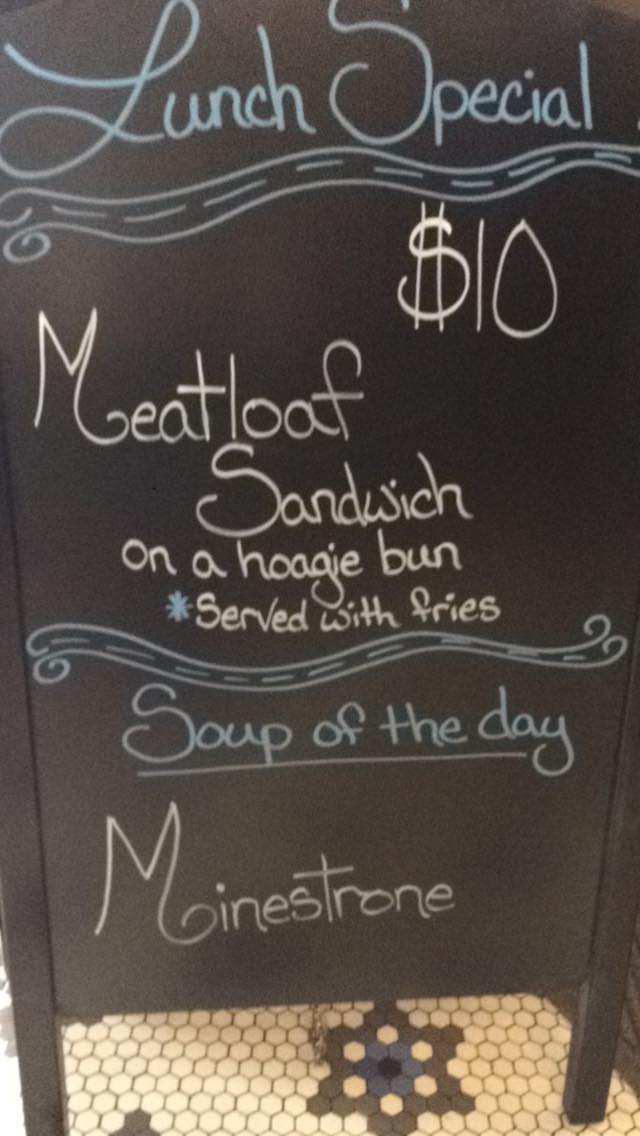 Lunch Special
$10
Meatloaf
Sandwich
on a hoagie bun
*Served with fries
Soup of the day
Minestrone